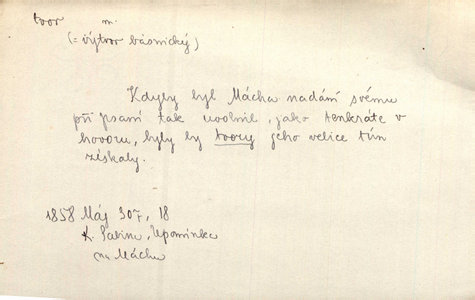 tvor m.
(= výtvor básnický)
Kdyby byl Mácha nadání svému
při psaní tak uvolnil, jako tenkráte v
hovoru, byly by tvory jeho velice tím
získaly.
1858 Máj 307, 18
K. Sabina, Upomínka
na Máchu